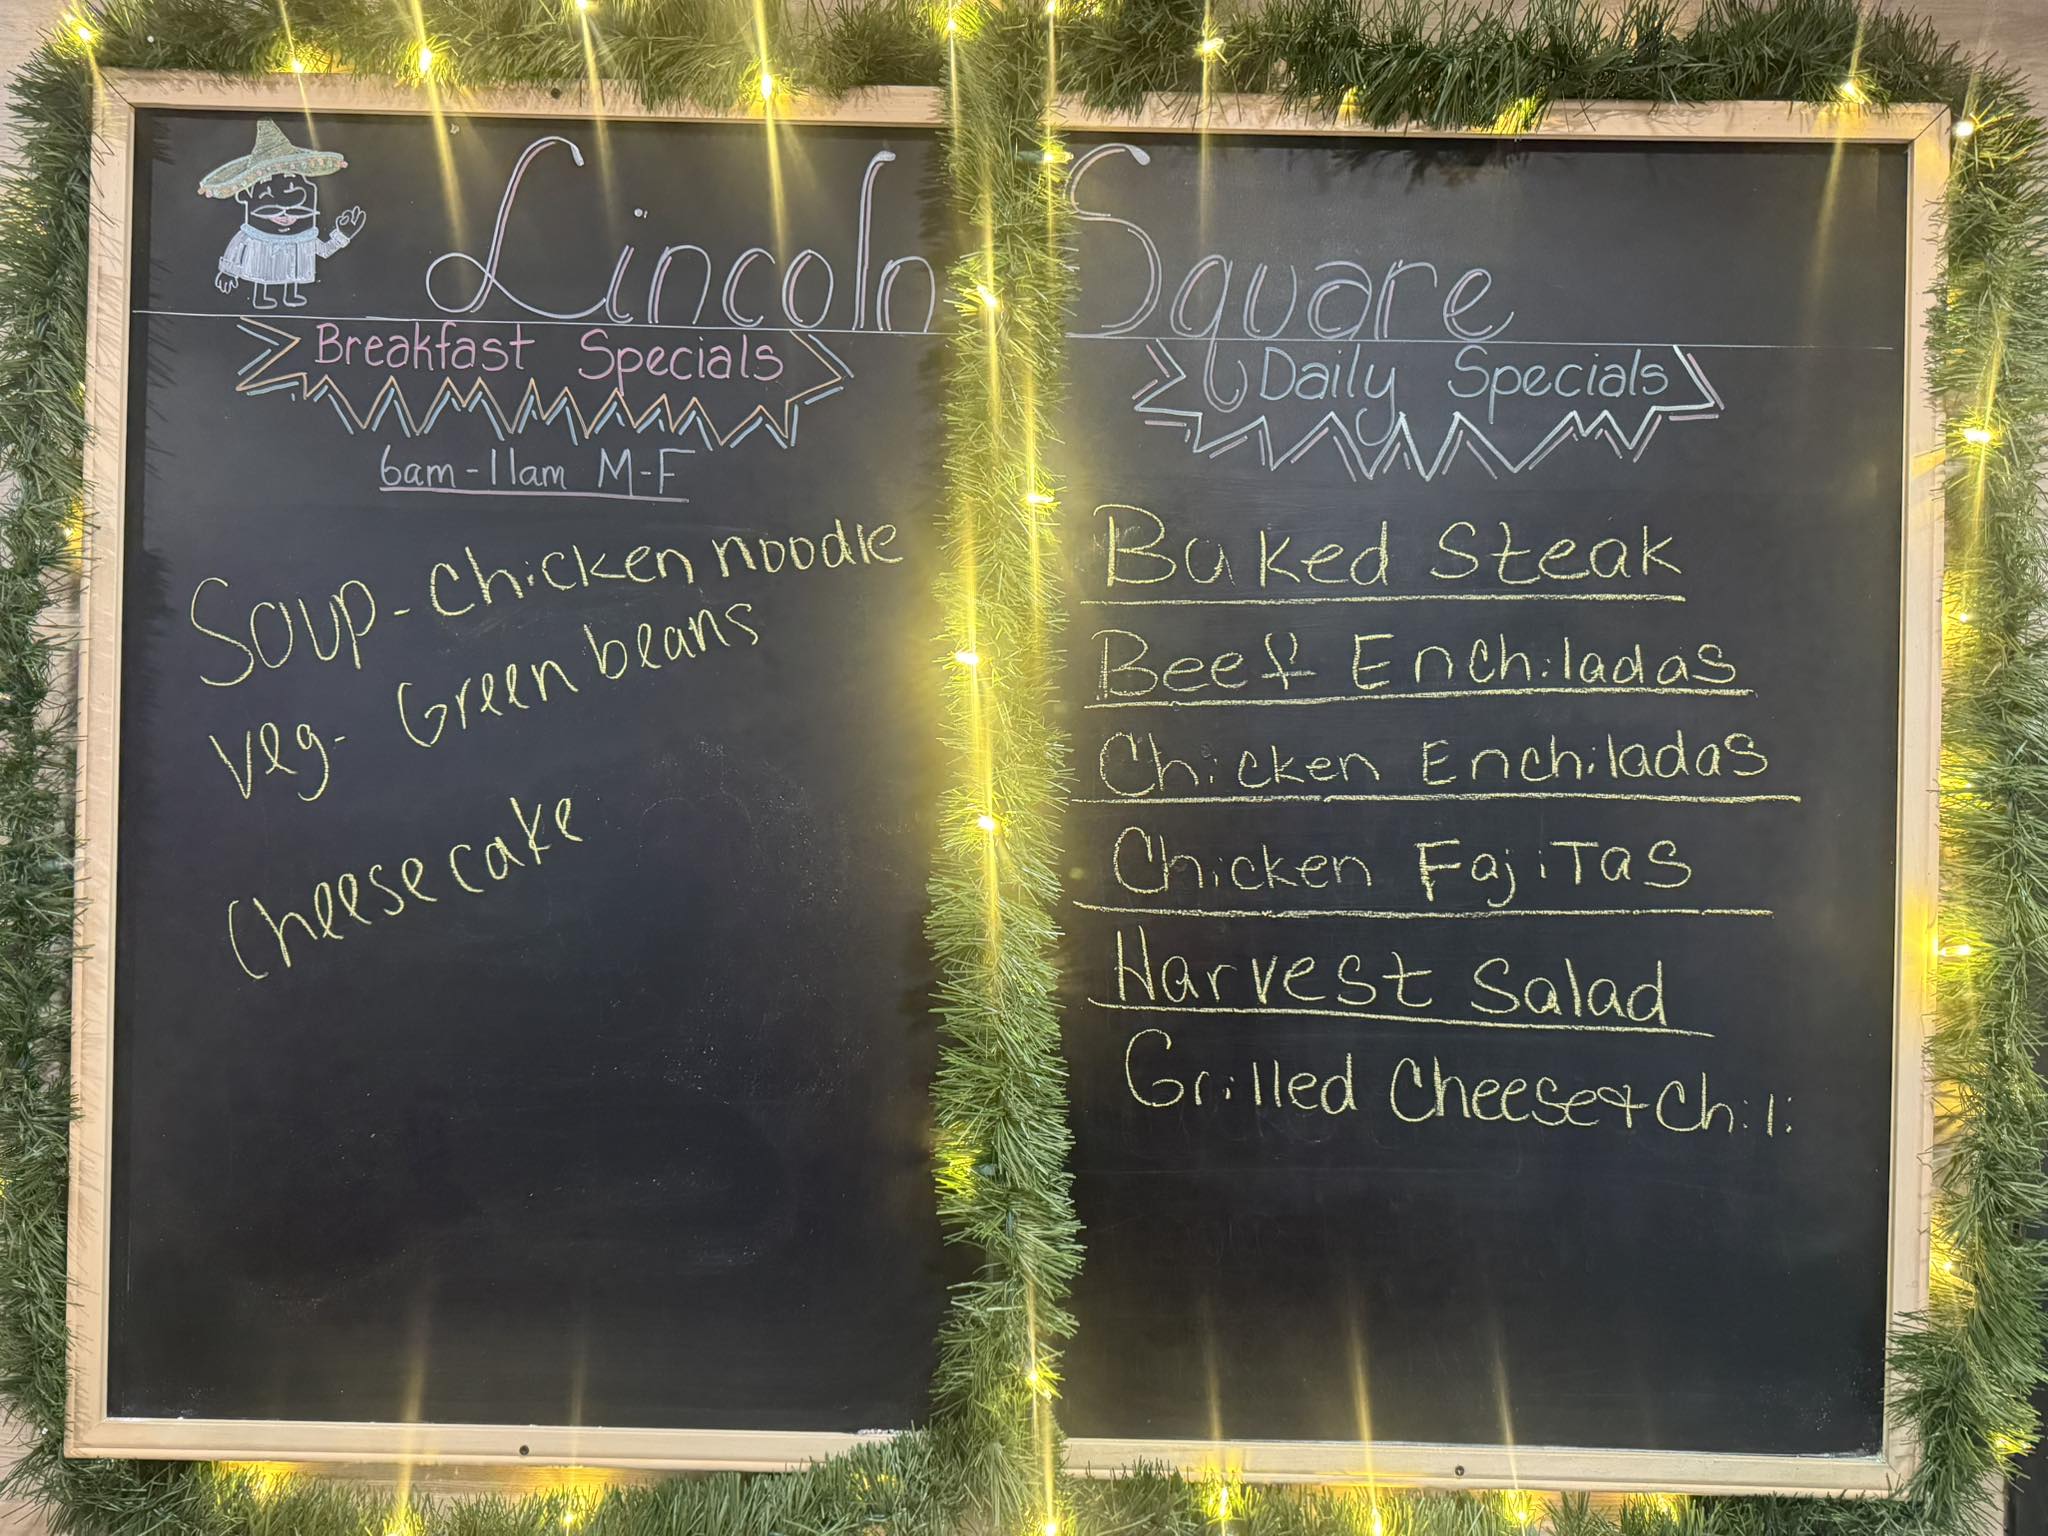 Lincoln Square
Breakfast Specials
6am-11am M-F
Soup-Chicken noodle
Veg- Green beans
Cheesecake
Daily Specials
Baked Steak
Beef Enchiladas
Chicken Enchiladas
Chicken Fajitas
Harvest Salad
Grilled Cheese+Chili